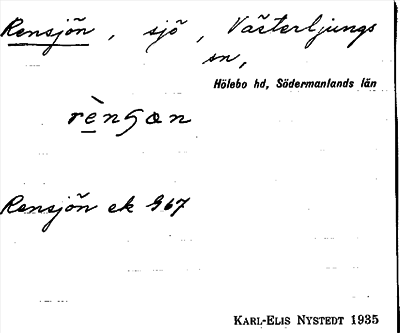 Rensjön, sjö, Västerljungs
sn,
Hölebo hd, Södermanlands län
rènsɷn
Rensjön ek 967
KARL-ELIS NYSTEDT 1935